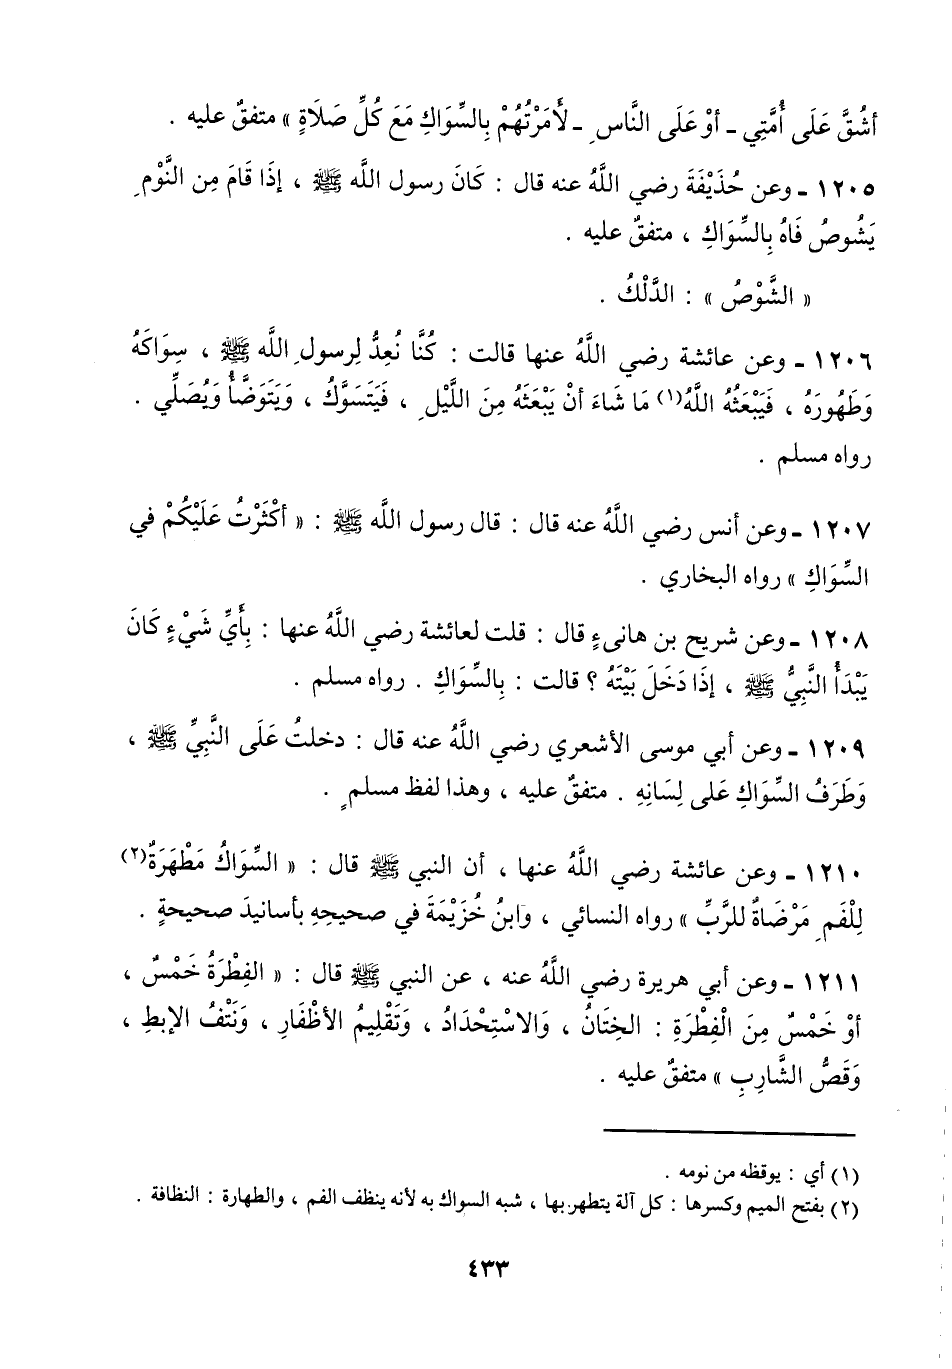 أشُقَّ عَلَى أُمَّتِي ـ أوْ عَلَى النَّاسِ ـ لأَمَرْتُهُمْ بِالسِّوَاكِ مَعَ كُلِّ صَلَاةٍ » متفقٌ عليه .
١٢٠٥ ـ وعن حُذَيْفَةَ رضي اللَّهُ عنه قال : كَانَ رسول اللَّه ﷺ ، إذَا قَامَ مِن النَّوْمِ
يَشُوصُ فَاهُ بِالسِّوَاكِ ، متفقٌ عليه .
« الشَّوْصُ » : الدَّلْكُ .
١٢٠٦ ـ وعن عائشة رضي اللَّهُ عنها قالت : كُنَّا نُعِدُّ لِرسولِ اللَّه ﷺ ، سِوَاكَهُ
وَطَهُورَهُ ، فَيَبْعَثُهُ اللَّهُ(١) مَا شَاءَ أنْ يَبْعَثَهُ مِنَ اللَّيْلِ ، فَيَتَسَوَّكُ ، وَيَتَوَضَّأُ وَيُصَلِّي .
رواه مسلم .
١٢٠٧ ـ وعن أنس رضي اللَّهُ عنه قال : قال رسول اللَّه ﷺ : « أكْثَرْتُ عَلَيْكُمْ في
السِّوَاكِ » رواه البخاري .
١٢٠٨ ـ وعن شريح بن هانىءٍ قال : قلت لعائشة رضي اللَّهُ عنها : بِأَيِّ شَيْءٍ كَانَ
يَبْدَأُ النَّبِيُّ ﷺ ، إذَا دَخَلَ بَيْتَهُ ؟ قالت : بِالسِّوَاكِ . رواه مسلم .
١٢٠٩ ـ وعن أبي موسى الأشعري رضي اللَّهُ عنه قال : دخلتُ عَلَى النَّبِيِّ ﷺ ،
وَطَرَفُ السِّوَاكِ عَلى لِسَانِهِ . متفقٌ عليه ، وهذا لفظ مسلمٍ .
١٢١٠ ـ وعن عائشة رضي اللَّهُ عنها ، أن النبي ﷺ قال : « السِّوَاكُ مَطْهَرَةٌ(٢)
لِلْفَمِ مَرْضَاةٌ للرَّبِّ » رواه النسائي ، وابنُ خُزَيْمَةَ في صحيحِهِ بأسانيدَ صحيحةٍ .
١٢١١ ـ وعن أبي هريرة رضي اللَّهُ عنه ، عن النبي ﷺ قال : « الفِطْرَةُ خَمْسٌ ،
أوْ خَمْسٌ مِنَ الْفِطْرَةِ : الخِتَانُ ، وَالاسْتِحْدَادُ ، وَتَقْلِيمُ الأظْفَارِ ، وَنَتْفُ الإبطِ ،
وَقَصُّ الشَّارِبِ » متفقٌ عليه .
(١) أي : يوقظه من نومه .
(٢) بفتح الميم وكسرها : كل آلة يتطهر بها ، شبه السواك به لأنه ينظف الفم ، والطهارة : النظافة .
٤٣٣